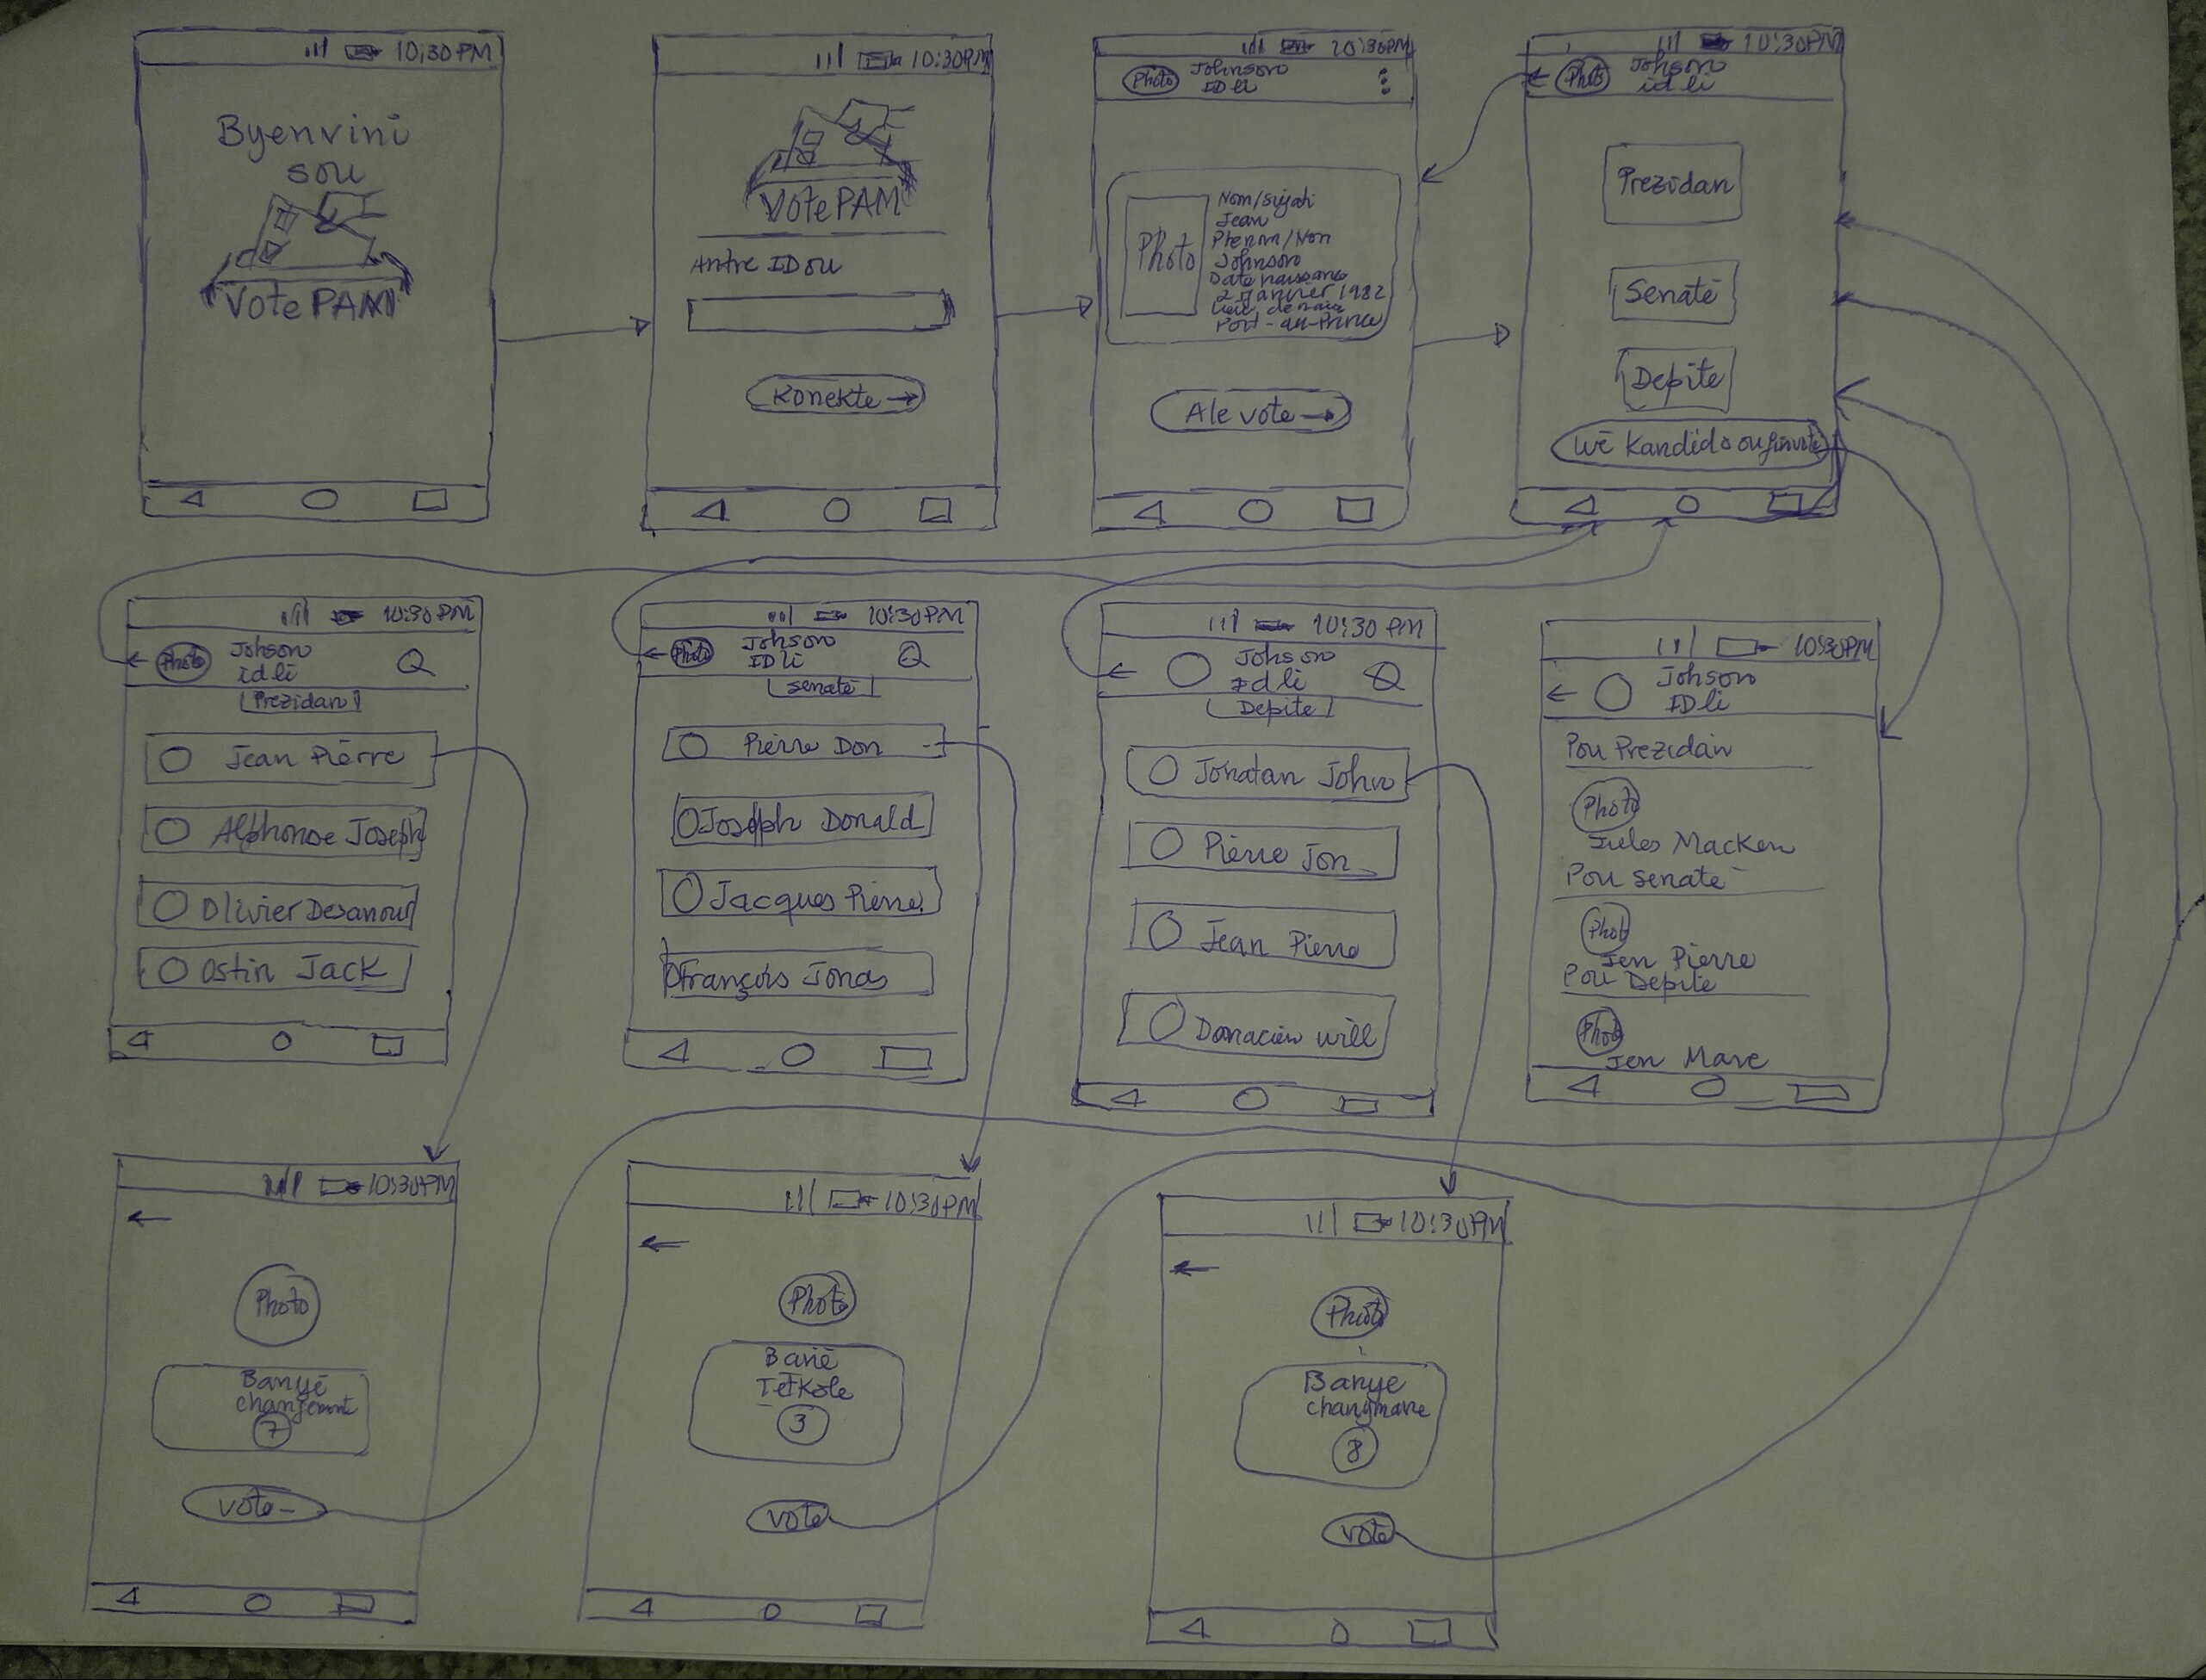 10:30PM
Byenvini
sou
VotePAM
10:30PM
VotePAM
Antre ID ou
Konekte
10:30PM
Photo
Johnson
ID li
Photo
Nom/siyati
Jean
Johnson
2 Janvier 1982
Port-au-Prince
Ale vote
10:30PM
Photo
Johson
id li
Prezidan
Senatè
Depite
wè Kandida ou
10:30PM
Photo
Johson
id li
Prezidan
Jean Pierre
Alphonse Joseph
Olivier
Ostin Jack
10:30PM
Photo
Johson
ID li
senatè
Pierre Don
Joseph Donald
Jacques Pierre
François Jonas
10:30 PM
Johson
Id li
Depite
Jonatan John
Pierre Jon
Jean Pierre
will
10:30PM
Johson
ID li
Pou Prezidan
Photo
Jules Macken
Pou senatè
Phot
Jen Pierre
Pou Depite
Phot
Jen Marc
10:30PM
Photo
Banyè
7
vote
10:30PM
Photo
TètKole
3
vote
10:30PM
Photo
Banye
8
vote